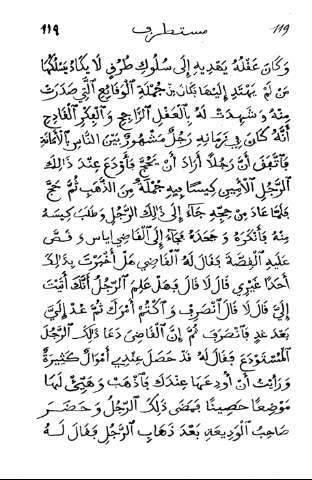 119 مستطرف 119
وَكَانَ عَقْلُهُ يَهْدِيهِ إِلَى سُلُوكِ طُرُقٍ لَا يَكَادُ يَسْلُكُهَا
مَنْ لَمْ يَهْتَدِ إِلَيْهَا فَكَانَ مِنْ جُمْلَةِ الْوَقَائِعِ الَّتِي صَدَرَتْ
مِنْهُ وَشَهِدَتْ لَهُ بِالْعَقْلِ الرَّاجِحِ وَالْفِكْرِ الْقَادِحِ
أَنَّهُ كَانَ فِي زَمَانِهِ رَجُلٌ مَشْهُورٌ بَيْنَ النَّاسِ بِالْأَمَانَةِ
فَاتَّفَقَ أَنَّ رَجُلًا أَرَادَ أَنْ يَحُجَّ فَأَوْدَعَ عِنْدَ ذَالِكَ
الرَّجُلِ الْأَمِينِ كِيسًا فِيهِ جُمْلَةٌ مِنَ الذَّهَبِ ثُمَّ حَجَّ
فَلَمَّا عَادَ مِنْ حَجِّهِ جَاءَ إِلَى ذَالِكَ الرَّجُلِ وَطَلَبَ كِيسَهُ
مِنْهُ فَأَنْكَرَهُ وَجَحَدَهُ فَجَاءَ إِلَى الْقَاضِي إياس وَقَصَّ
عَلَيْهِ الْقِصَّةَ فَقَالَ لَهُ الْقَاضِي هَلْ أَخْبَرْتَ بِذَالِكَ
أَحَدًا غَيْرِي قَالَ لَا قَالَ فَهَلْ عَلِمَ الرَّجُلُ أَنَّكَ أَتَيْتَ
إِلَيَّ قَالَ لَا قَالَ انْصَرِفْ وَاكْتُمْ أَمْرَكَ ثُمَّ عُدْ إِلَيَّ
بَعْدَ غَدٍ فَانْصَرَفَ ثُمَّ إِنَّ الْقَاضِيَ دَعَا ذَلِكَ الرَّجُلَ
الْمُسْتَوْدَعَ فَقَالَ لَهُ قَدْ حَصَلَ عِنْدِي أَمْوَالٌ كَثِيرَةٌ
وَرَأَيْتُ أَنْ أُودِعَهَا عِنْدَكَ فَاذْهَبْ وَهَيِّئْ لَهَا
مَوْضِعًا حَصِينًا فَمَضَى ذَلِكَ الرَّجُلُ وَحَضَرَ
صَاحِبُ الْوَدِيعَةِ بَعْدَ ذَهَابِ الرَّجُلِ فَقَالَ لَهُ